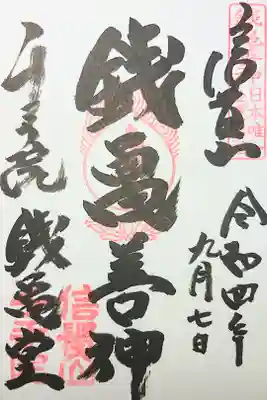 令和四年
九月七日
銭亀善神
千手院
銭亀堂
信貴山
日本唯